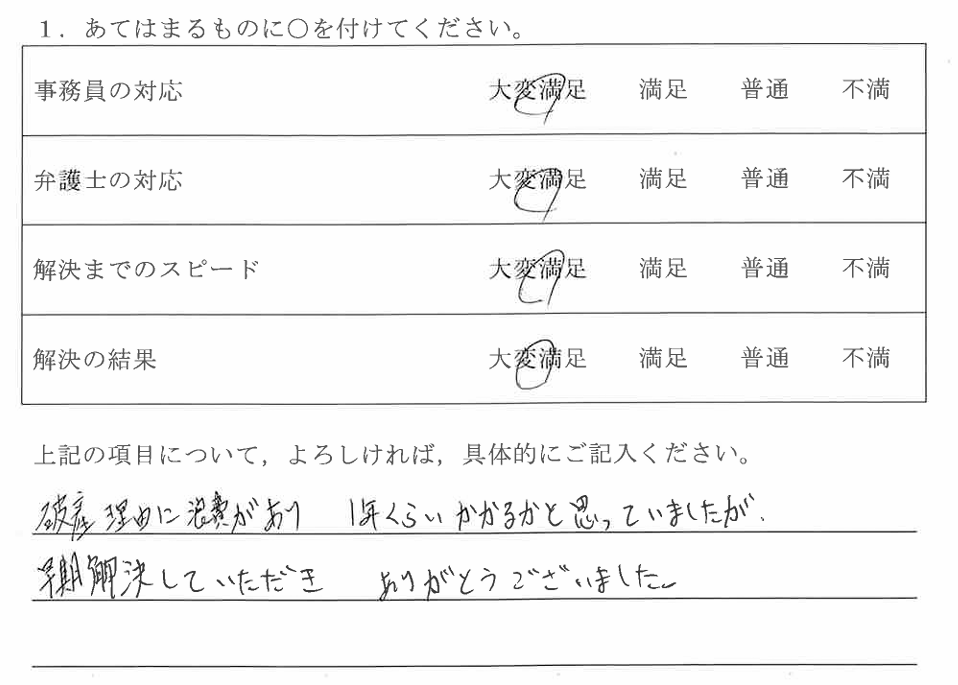 1．あてはまるものに○を付けてください。
事務員の対応 大変満足 満足 普通 不満
弁護士の対応 大変満足 満足 普通 不満
解決までのスピード 大変満足 満足 普通 不満
解決の結果 大変満足 満足 普通 不満
上記の項目について，よろしければ，具体的にご記入ください。
破産理由に浪費があり 1年くらいかかるかと思っていましたが、
早期解決していただき ありがとうございました。